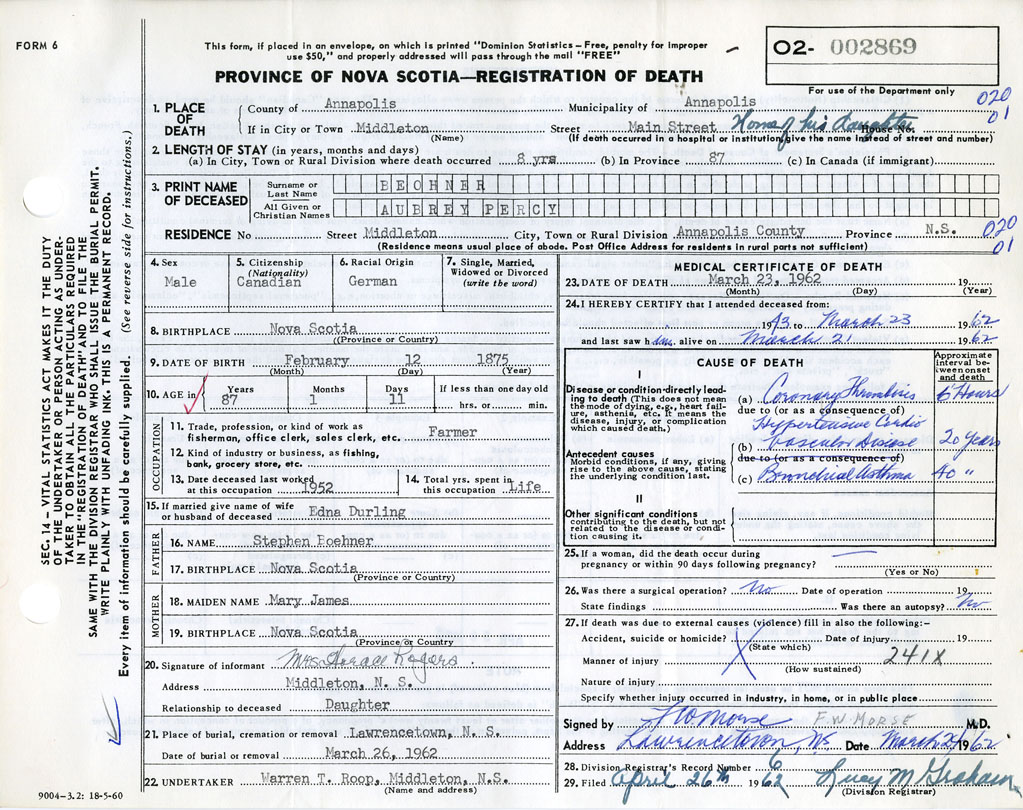 FORM 6
This form, if placed in an envelope, on which is printed "Dominion Statistics – Free, penalty for improper
use $50," and properly addressed will pass through the mail "FREE"
O2- 002869
For use of the Department only
PROVINCE OF NOVA SCOTIA—REGISTRATION OF DEATH
020
01
1. PLACE OF DEATH
County of Annapolis Municipality of Annapolis
If in City or Town Middleton Street Main Street Home of his daughter House No.
(Name) (If death occurred in a hospital or institution, give name instead of street and number)
2. LENGTH OF STAY (in years, months and days)
(a) In City, Town or Rural Division where death occurred 8 yrs. (b) In Province 87 (c) In Canada (if immigrant)
3. PRINT NAME OF DECEASED
Surname or Last Name BEOHNER
All Given or Christian Names AUBREY PERCY
RESIDENCE No Street Middleton City, Town or Rural Division Annapolis County Province N.S. 020
(Residence means usual place of abode. Post Office Address for residents in rural parts not sufficient) 01
4. Sex Male
5. Citizenship (Nationality) Canadian
6. Racial Origin German
7. Single, Married, Widowed or Divorced (write the word)
8. BIRTHPLACE Nova Scotia
(Province or Country)
9. DATE OF BIRTH February 12 1875
(Month) (Day) (Year)
10. AGE in Years 87 Months 1 Days 11 If less than one day old hrs. or min.
OCCUPATION
11. Trade, profession, or kind of work as fisherman, office clerk, sales clerk, etc. Farmer
12. Kind of industry or business, as fishing, bank, grocery store, etc.
13. Date deceased last worked at this occupation 1952
14. Total yrs. spent in this occupation Life
15. If married give name of wife or husband of deceased Edna Durling
FATHER
16. NAME Stephen Boehner
17. BIRTHPLACE Nova Scotia
(Province or Country)
MOTHER
18. MAIDEN NAME Mary James
19. BIRTHPLACE Nova Scotia
(Province or Country)
20. Signature of informant Mrs. Horace Rogers
Address Middleton, N. S.
Relationship to deceased Daughter
21. Place of burial, cremation or removal Lawrencetown, N. S.
Date of burial or removal March 26, 1962
22. UNDERTAKER Warren T. Roop, Middleton, N.S.
(Name and address)
MEDICAL CERTIFICATE OF DEATH
23. DATE OF DEATH March 23, 1962 19
(Month) (Day) (Year)
24. I HEREBY CERTIFY that I attended deceased from:
1943 to March 23 1962
and last saw him alive on March 21 1962
CAUSE OF DEATH
Approximate interval between onset and death
I
Disease or condition directly leading to death (This does not mean the mode of dying, e.g., heart failure, asthenia, etc. It means the disease, injury, or complication which caused death.)
(a) Coronary Thrombosis 6 Hours
due to (or as a consequence of)
Hypertensive Cardio
(b) Vascular Disease 20 Years
due to (or as a consequence of)
Antecedent causes
Morbid conditions, if any, giving rise to the above cause, stating the underlying condition last.
(c) Bronchial Asthma 40 "
II
Other significant conditions
contributing to the death, but not related to the disease or condition causing it.
25. If a woman, did the death occur during pregnancy or within 90 days following pregnancy? —
(Yes or No)
26. Was there a surgical operation? No Date of operation 19
State findings Was there an autopsy? No
27. If death was due to external causes (violence) fill in also the following:-
Accident, suicide or homicide? Date of injury 19
(State which)
Manner of injury 241X
(How sustained)
Nature of injury
Specify whether injury occurred in industry, in home, or in public place
Signed by F W Morse F.W MORSE M.D.
Address Lawrencetown, NS Date March 1962
28. Division Registrar's Record Number 6
29. Filed April 26th 1962 Lucy M Graham
(Division Registrar)
SEC. 14 – VITAL STATISTICS ACT MAKES IT THE DUTY
OF THE UNDERTAKER OR PERSON ACTING AS UNDER-
TAKER TO OBTAIN ALL THE PARTICULARS REQUIRED
IN THE "REGISTRATION OF DEATH" AND TO FILE THE
SAME WITH THE DIVISION REGISTRAR WHO SHALL ISSUE THE BURIAL PERMIT.
WRITE PLAINLY WITH UNFADING INK. THIS IS A PERMANENT RECORD.
Every item of information should be carefully supplied. (See reverse side for instructions.)
9004-3.2: 18-5-60